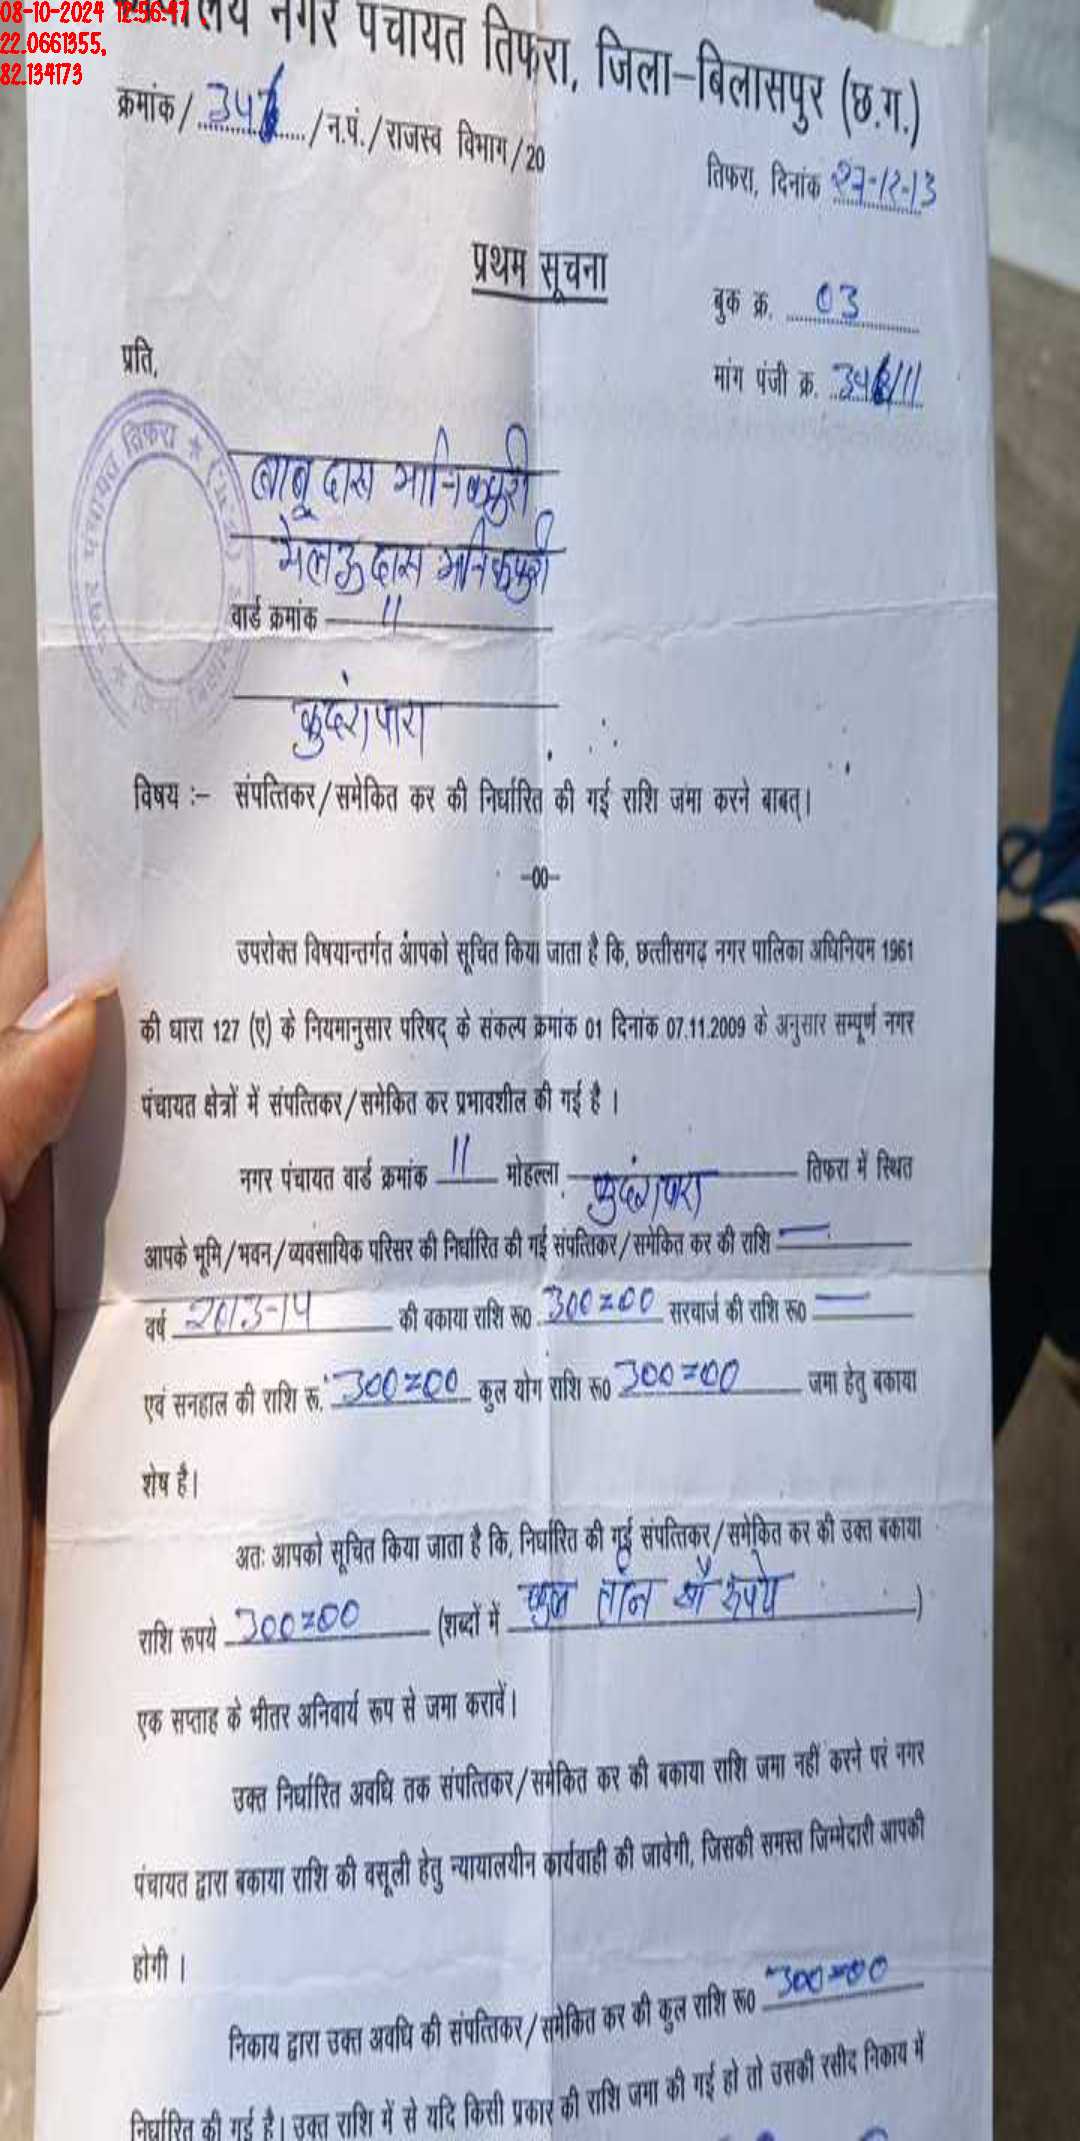 08-10-2024 12:56:47
22.0661355,
82.134173
नगर पंचायत तिफरा, जिला-बिलासपुर (छ.ग.)
क्रमांक/ /न.पं./राजस्व विभाग/20
तिफरा, दिनांक 27-12-13
प्रथम सूचना
बुक क्र. 03
प्रति,
मांग पंजी क्र.
नगर पंचायत तिफरा
बाबू दास मानिकपुरी
मेलऊ दास मानिकपुरी
वार्ड क्रमांक 11
कुदरापारा
विषय :- संपत्तिकर/समेकित कर की निर्धारित की गई राशि जमा करने बाबत्।
-00-
उपरोक्त विषयान्तर्गत आपको सूचित किया जाता है कि, छत्तीसगढ़ नगर पालिका अधिनियम 1961
की धारा 127 (ए) के नियमानुसार परिषद् के संकल्प क्रमांक 01 दिनांक 07.11.2009 के अनुसार सम्पूर्ण नगर
पंचायत क्षेत्रों में संपत्तिकर/समेकित कर प्रभावशील की गई है ।
नगर पंचायत वार्ड क्रमांक 11 मोहल्ला कुदरापारा तिफरा में स्थित
आपके भूमि/भवन/व्यवसायिक परिसर की निर्धारित की गई संपत्तिकर/समेकित कर की राशि —
वर्ष 2013-14 की बकाया राशि रू0 300=00 सरचार्ज की राशि रू0 —
एवं सनहाल की राशि रू. 300=00 कुल योग राशि रू0 300=00 जमा हेतु बकाया
शेष है।
अतः आपको सूचित किया जाता है कि, निर्धारित की गई संपत्तिकर/समेकित कर की उक्त बकाया
राशि रूपये 300=00 (शब्दों में कुल तीन सौ रूपये )
एक सप्ताह के भीतर अनिवार्य रूप से जमा करावें।
उक्त निर्धारित अवधि तक संपत्तिकर/समेकित कर की बकाया राशि जमा नहीं करने पर नगर
पंचायत द्वारा बकाया राशि की वसूली हेतु न्यायालयीन कार्यवाही की जावेगी, जिसकी समस्त जिम्मेदारी आपकी
होगी ।
निकाय द्वारा उक्त अवधि की संपत्तिकर/समेकित कर की कुल राशि रू0 300=00
निर्धारित की गई है। उक्त राशि में से यदि किसी प्रकार की राशि जमा की गई हो तो उसकी रसीद निकाय में